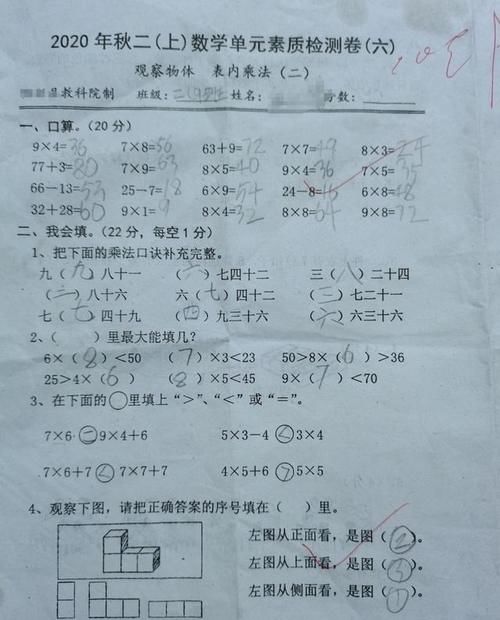 2020年秋二(上)数学单元素质检测卷(六)
观察物体 表内乘法(二)
县教科院制 班级: 姓名: 分数:
一、口算。(20分)
9×4=36 7×8=56 63+9=72 7×7=49 8×3=24
77+3=80 7×9=63 8×5=40 9×4=36 7×5=35
66-13=53 25-7=18 6×9=54 24-8=16 6×8=48
32+28=60 9×1=9 8×4=32 8×8=64 9×8=72
二、我会填。(22分,每空1分)
1、把下面的乘法口诀补充完整。
九(九)八十一 (六)七四十二 三(八)二十四
(二)八十六 六(七)四十二 (三)七二十一
七(七)四十九 (四)九三十六 (六)六三十六
2、( )里最大能填几?
6×(8)<50 (7)×3<23 50>8×(6)>36
25>4×(6) (8)×5<45 9×(7)<70
3、在下面的○里填上“>”、“<”或“=”。
7×6=9×4+6 5×3-4<3×4
7×6+7<7×7+7 4×5+6>5×5
4、观察下图,请把正确答案的序号填在( )里。
左图从正面看,是图(②)。
左图从上面看,是图(③)。
左图从侧面看,是图(①)。